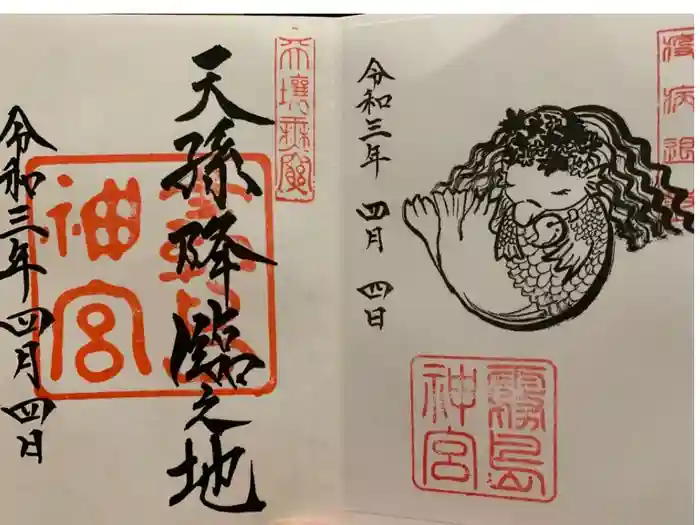 疫病退散
令和三年 四月 四日
霧島
神宮
天孫降臨之地
霧島
神宮
令和三年四月四日